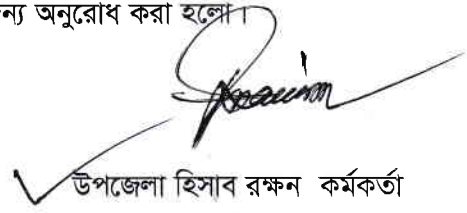 ন্য অনুরোধ করা হলো।
উপজেলা হিসাব রক্ষন কর্মকর্তা